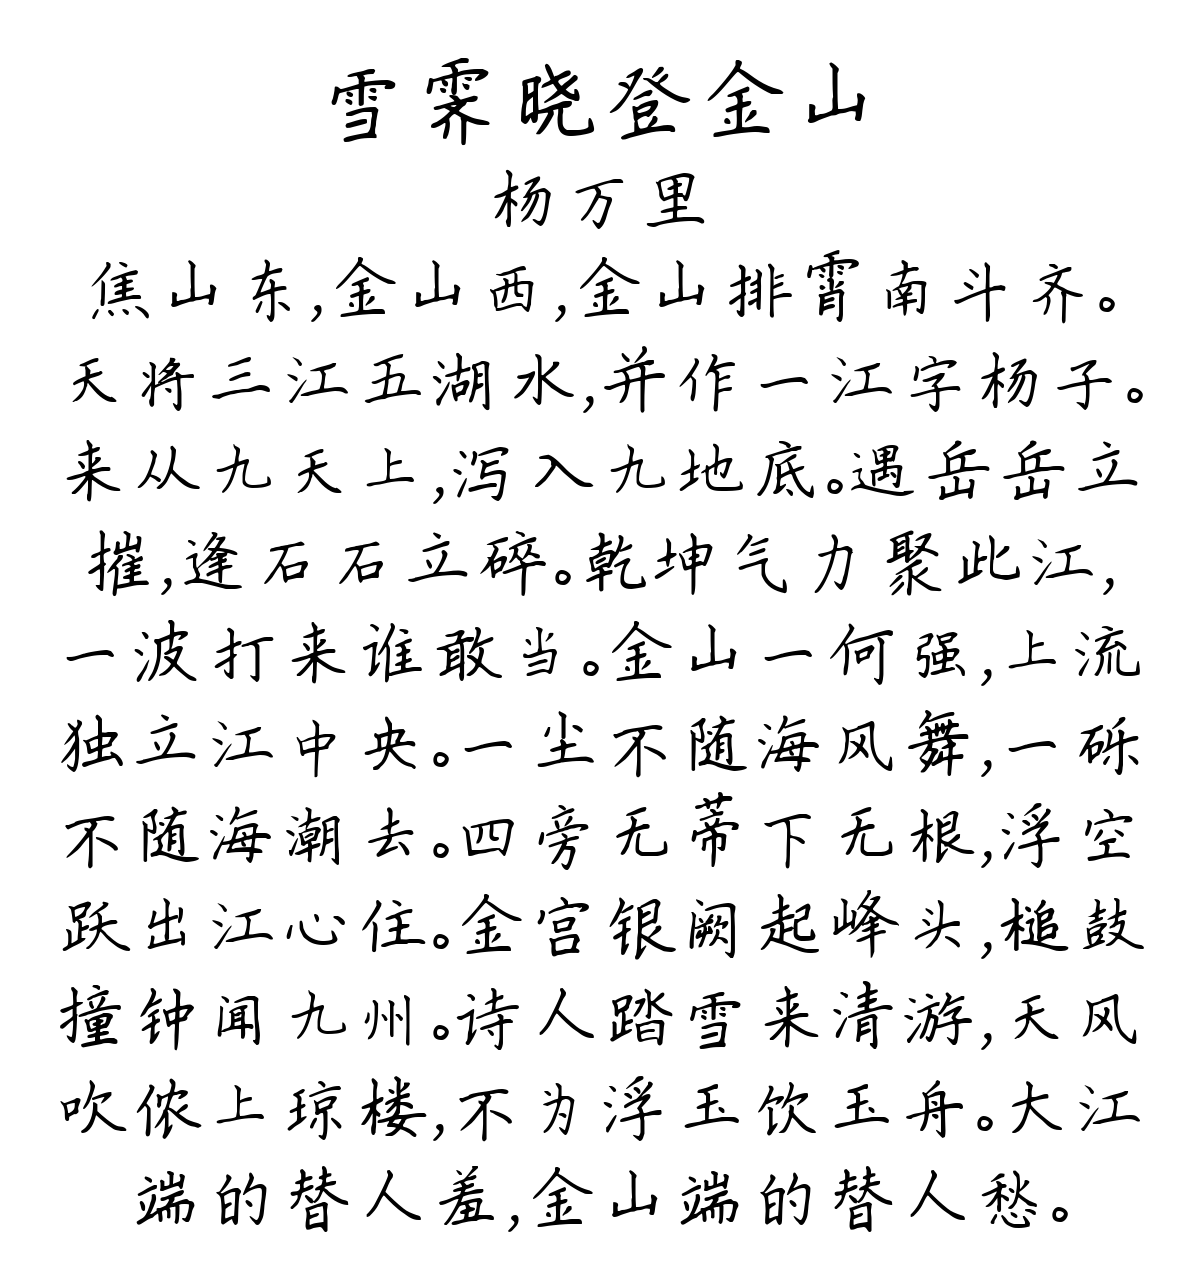 雪霁晓登金山
杨万里
焦山东,金山西,金山排霄南斗齐。
天将三江五湖水,并作一江字杨子。
来从九天上,泻入九地底。遇岳岳立
摧,逢石石立碎。乾坤气力聚此江,
一波打来谁敢当。金山一何强,上流
独立江中央。一尘不随海风舞,一砾
不随海潮去。四旁无蒂下无根,浮空
跃出江心住。金宫银阙起峰头,槌鼓
撞钟闻九州。诗人踏雪来清游,天风
吹侬上琼楼,不为浮玉饮玉舟。大江
端的替人羞,金山端的替人愁。